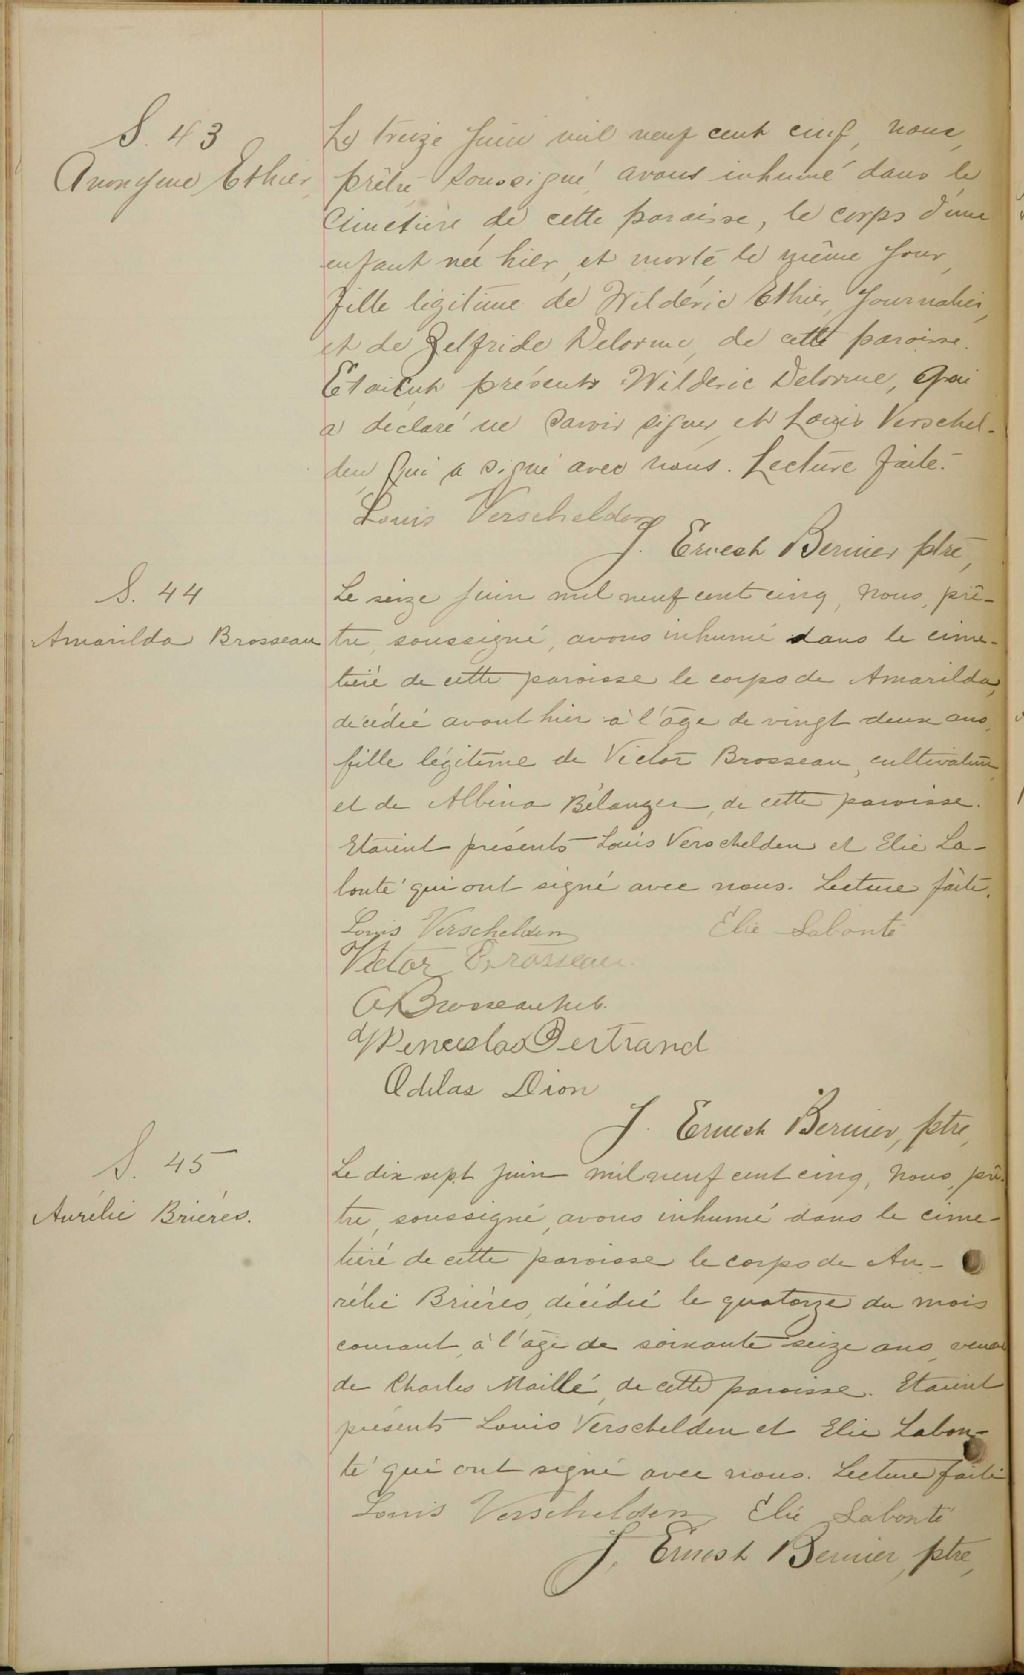 S. 43
Anonyme Ethier,
Le treize Juin mil neuf cent cinq, nous,
prêtre soussigné, avons inhumé dans le
Cimetière de cette paroisse, le corps d'une
enfant née hier, et morte le même Jour,
fille légitime de Wildéric Ethier, Journalier,
et de Zelfride Delorme, de cette paroisse.
Etaient présents Wilderic Delorme, qui
a déclaré ne savoir signer, et Louis Verschel-
den, qui a signé avec nous. Lecture faite.
Louis Verschelden
J. Ernest Bernier ptre,
S. 44
Amarilda Brosseau
Le seize juin mil neuf cent cinq, nous, prê-
tre, soussigné, avons inhumé dans le cime-
tière de cette paroisse le corps de Amarilda,
décédée avant hier à l'âge de vingt deux ans,
fille légitime de Victor Brosseau, cultivateur,
et de Albina Bélanger, de cette paroisse.
Etaient présents Louis Verschelden et Elie La-
bonté qui ont signé avec nous. Lecture faite.
Louis Verschelden Elie Labonté
Victor Brosseau
A Brosseau
Wenceslas Bertrand
Odilas Dion
J. Ernest Bernier, ptre,
S. 45
Aurélie Brières.
Le dix sept juin mil neuf cent cinq, nous, prê-
tre, soussigné, avons inhumé dans le cime-
tière de cette paroisse le corps de Au-
rélie Brières, décédée le quatorze du mois
courant, à l'âge de soixante seize ans, veuve
de Charles Maillé, de cette paroisse. Etaient
présents Louis Verschelden et Elie Labon-
té qui ont signé avec nous. Lecture faite
Louis Verschelden Elie Labonté
J. Ernest Bernier, ptre,